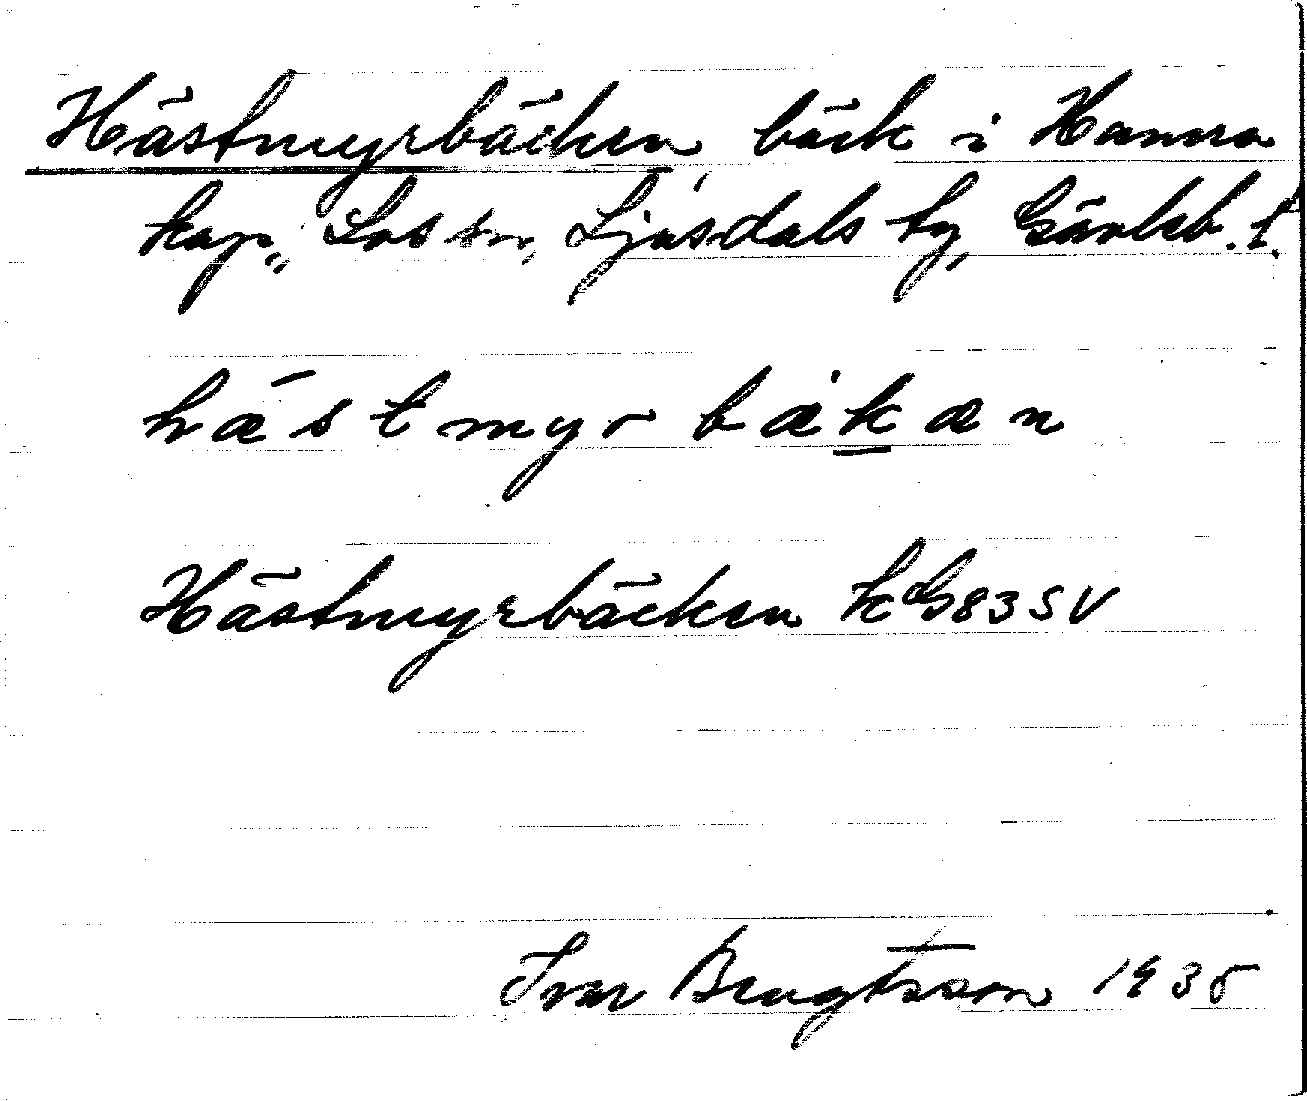 Hästmyrbäcken, bäck i Hamra
kap., Los sn, Ljusdals tg, Gävleb. l.
hǽstmyrbækæn
Hästmyrbäcken k G83SV
Ivar Bengtsson 1935